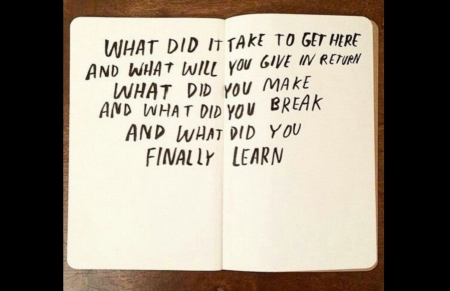 WHAT DID IT TAKE TO GET HERE
AND WHAT WILL YOU GIVE IN RETURN
WHAT DID YOU MAKE
AND WHAT DID YOU BREAK
AND WHAT DID YOU
FINALLY LEARN